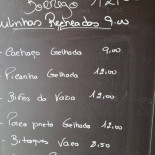 Borrego 12,00
ulinhas Recheados 9.00
- Cachaço Gelhada 9,00
- Picanha Gelhada 12,00
- Bifes da Vazia 12,00
- Porco preto Gelhado 12,00
- Bitoque Vaca 8.50